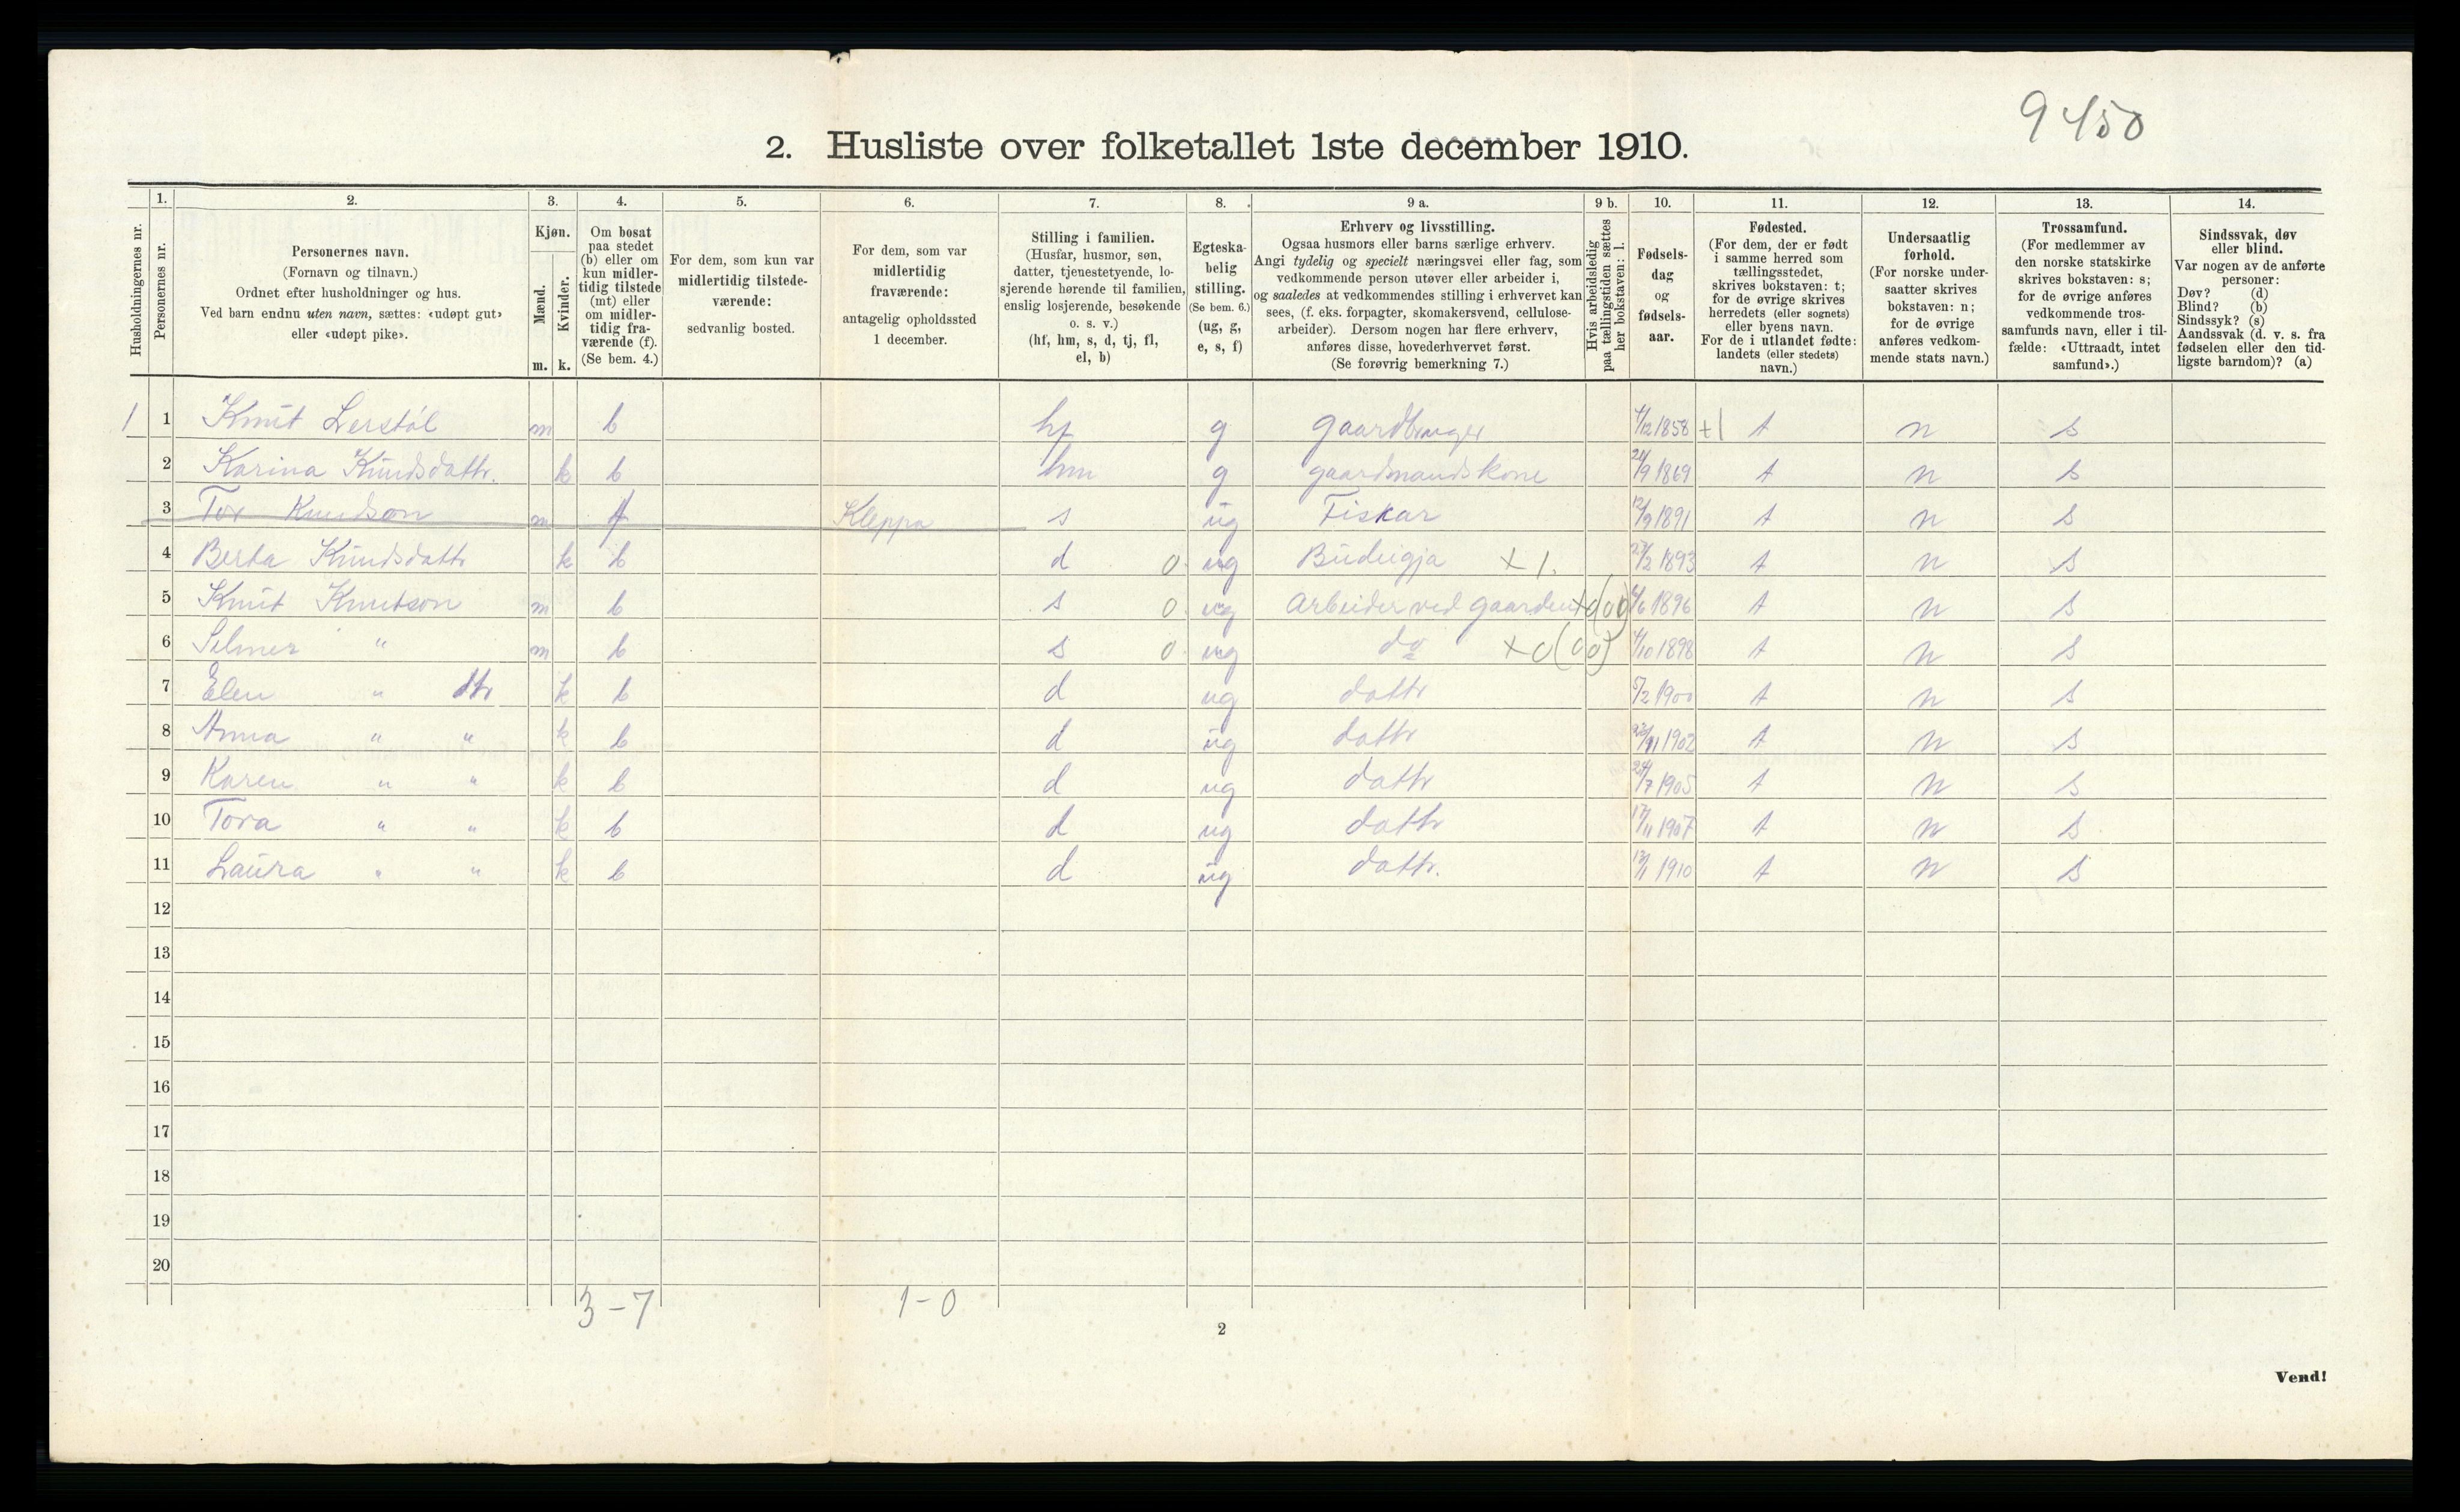 9450
2. Husliste over folketallet 1ste december 1910.
1. 2. 3. 4. 5. 6. 7. 8. 9 a. 9 b. 10. 11. 12. 13. 14.
Husholdningernes nr.
Personernes nr.
Personernes navn.
(Fornavn og tilnavn.)
Ordnet efter husholdninger og hus.
Ved barn endnu uten navn, sættes: «udøpt gut»
eller «udøpt pike».
Kjøn.
Mænd.
Kvinder.
m. k.
Om bosat
paa stedet
(b) eller om
kun midler-
tidig tilstede
(mt) eller
om midler-
tidig fra-
værende (f).
(Se bem. 4.)
For dem, som kun var
midlertidig tilstede-
værende:
sedvanlig bosted.
For dem, som var
midlertidig
fraværende:
antagelig opholdssted
1 december.
Stilling i familien.
(Husfar, husmor, søn,
datter, tjenestetyende, lo-
sjerende hørende til familien,
enslig losjerende, besøkende
o. s. v.)
(hf, hm, s, d, tj, fl,
el, b)
Egteska-
belig
stilling.
(Se bem. 6.)
(ug, g,
e, s, f)
Erhverv og livsstilling.
Ogsaa husmors eller barns særlige erhverv.
Angi tydelig og specielt næringsvei eller fag, som
vedkommende person utøver eller arbeider i,
og saaledes at vedkommendes stilling i erhvervet kan
sees, (f. eks. forpagter, skomakersvend, cellulose-
arbeider). Dersom nogen har flere erhverv,
anføres disse, hovederhvervet først.
(Se forøvrig bemerkning 7.)
Hvis arbeidsledig
paa tællingstiden sættes
her bokstaven: l.
Fødsels-
dag
og
fødsels-
aar.
Fødested.
(For dem, der er født
i samme herred som
tællingsstedet,
skrives bokstaven: t;
for de øvrige skrives
herredets (eller sognets)
eller byens navn.
For de i utlandet fødte:
landets (eller stedets)
navn.)
Undersaatlig
forhold.
(For norske under-
saatter skrives
bokstaven: n;
for de øvrige
anføres vedkom-
mende stats navn.)
Trossamfund.
(For medlemmer av
den norske statskirke
skrives bokstaven: s;
for de øvrige anføres
vedkommende tros-
samfunds navn, eller i til-
fælde: «Uttraadt, intet
samfund».)
Sindssvak, døv
eller blind.
Var nogen av de anførte
personer:
Døv? (d)
Blind? (b)
Sindssyk? (s)
Aandssvak (d. v. s. fra
fødselen eller den tid-
ligste barndom)? (a)
1 1 Knut Lerstøl m b hf g gaardbruger 4/12 1858 +1 t n s
2 Karina Knudsdattr. k b hm g gaardmandskone 24/9 1869 t n s
3 Tor Knudson m f Kleppa s ug Fiskar 12/9 1891 t n s
4 Berta Knudsdattr k b d 0 ug Budeigja +1. 27/2 1893 t n s
5 Knut Knutson m b s 0 ug Arbeider ved gaarden +0(00) 4/6 1896 t n s
6 Selmer " m b s 0 ug do +0(00) 4/10 1898 t n s
7 Elen " dtr k b d ug dattr 5/2 1900 t n s
8 Anna " " k b d ug dattr 11 1902 t n s
9 Karen " " k b d ug dattr 24/7 1905 t n s
10 Tora " " k b d ug dattr 17/11 1907 t n s
11 Laura " " k b d ug dattr. 13/1 1910 t n s
12
13
14
15
16
17
18
19
20
3-7 1-0
2
Vend!